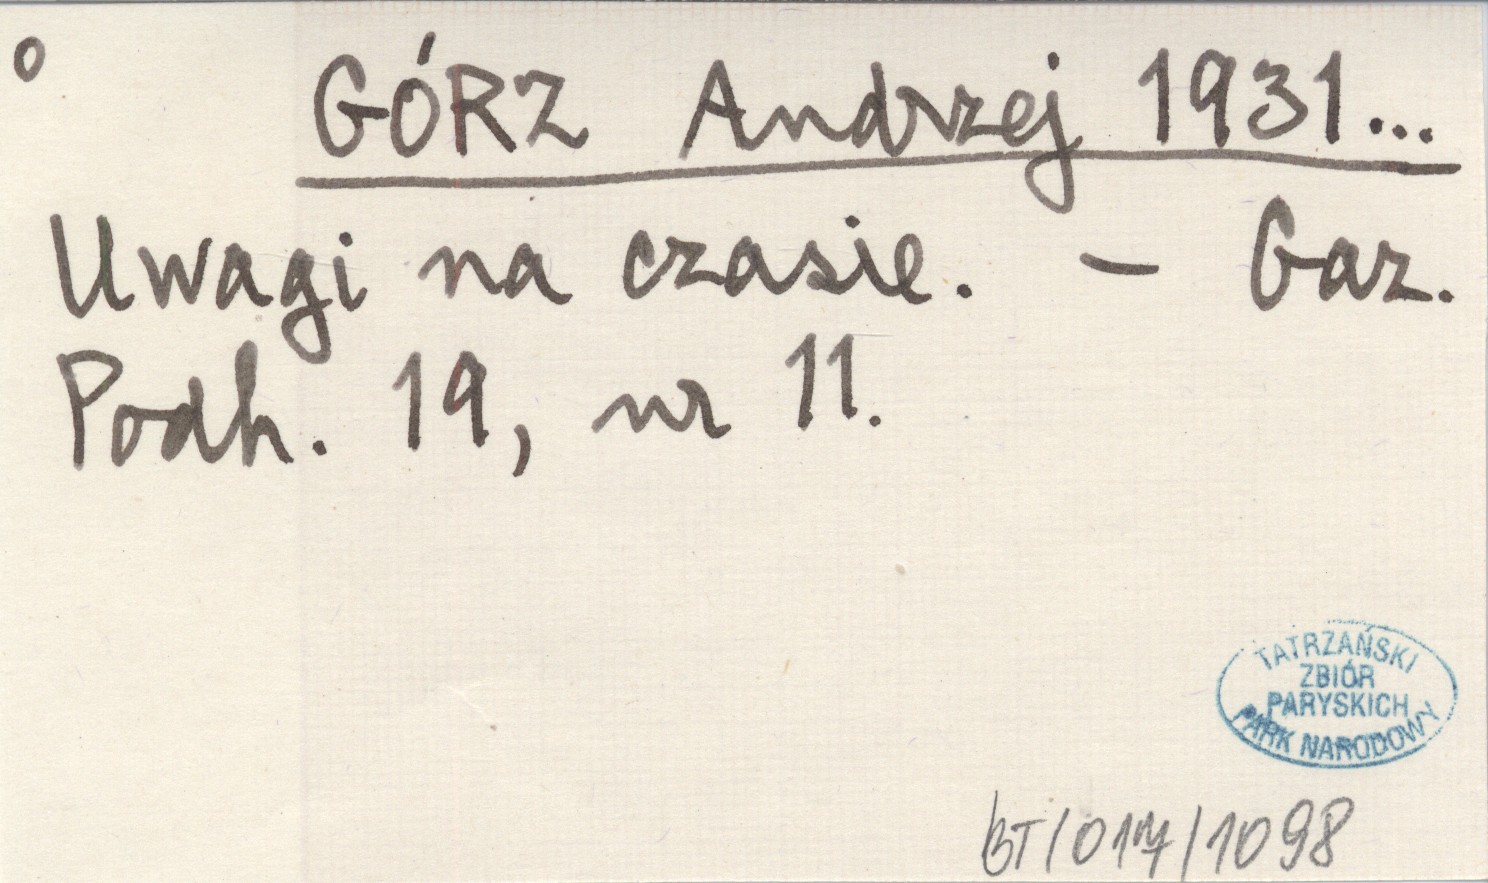 o
GÓRZ Andrzej 1931...
Uwagi na czasie. – Gaz.
Podh. 19, nr 11.
TATRZAŃSKI
ZBIÓR
PARYSKICH
PARK NARODOWY
BT/017/1098